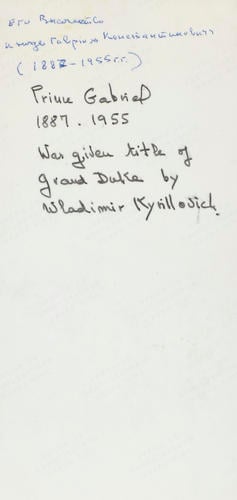 Его Высочество
князь Гавриил Константинович
(1887-1955 г.г.)
Prince Gabriel
1887. 1955
Was given title of
Grand Duke by
Wladimir Kyrillovich.